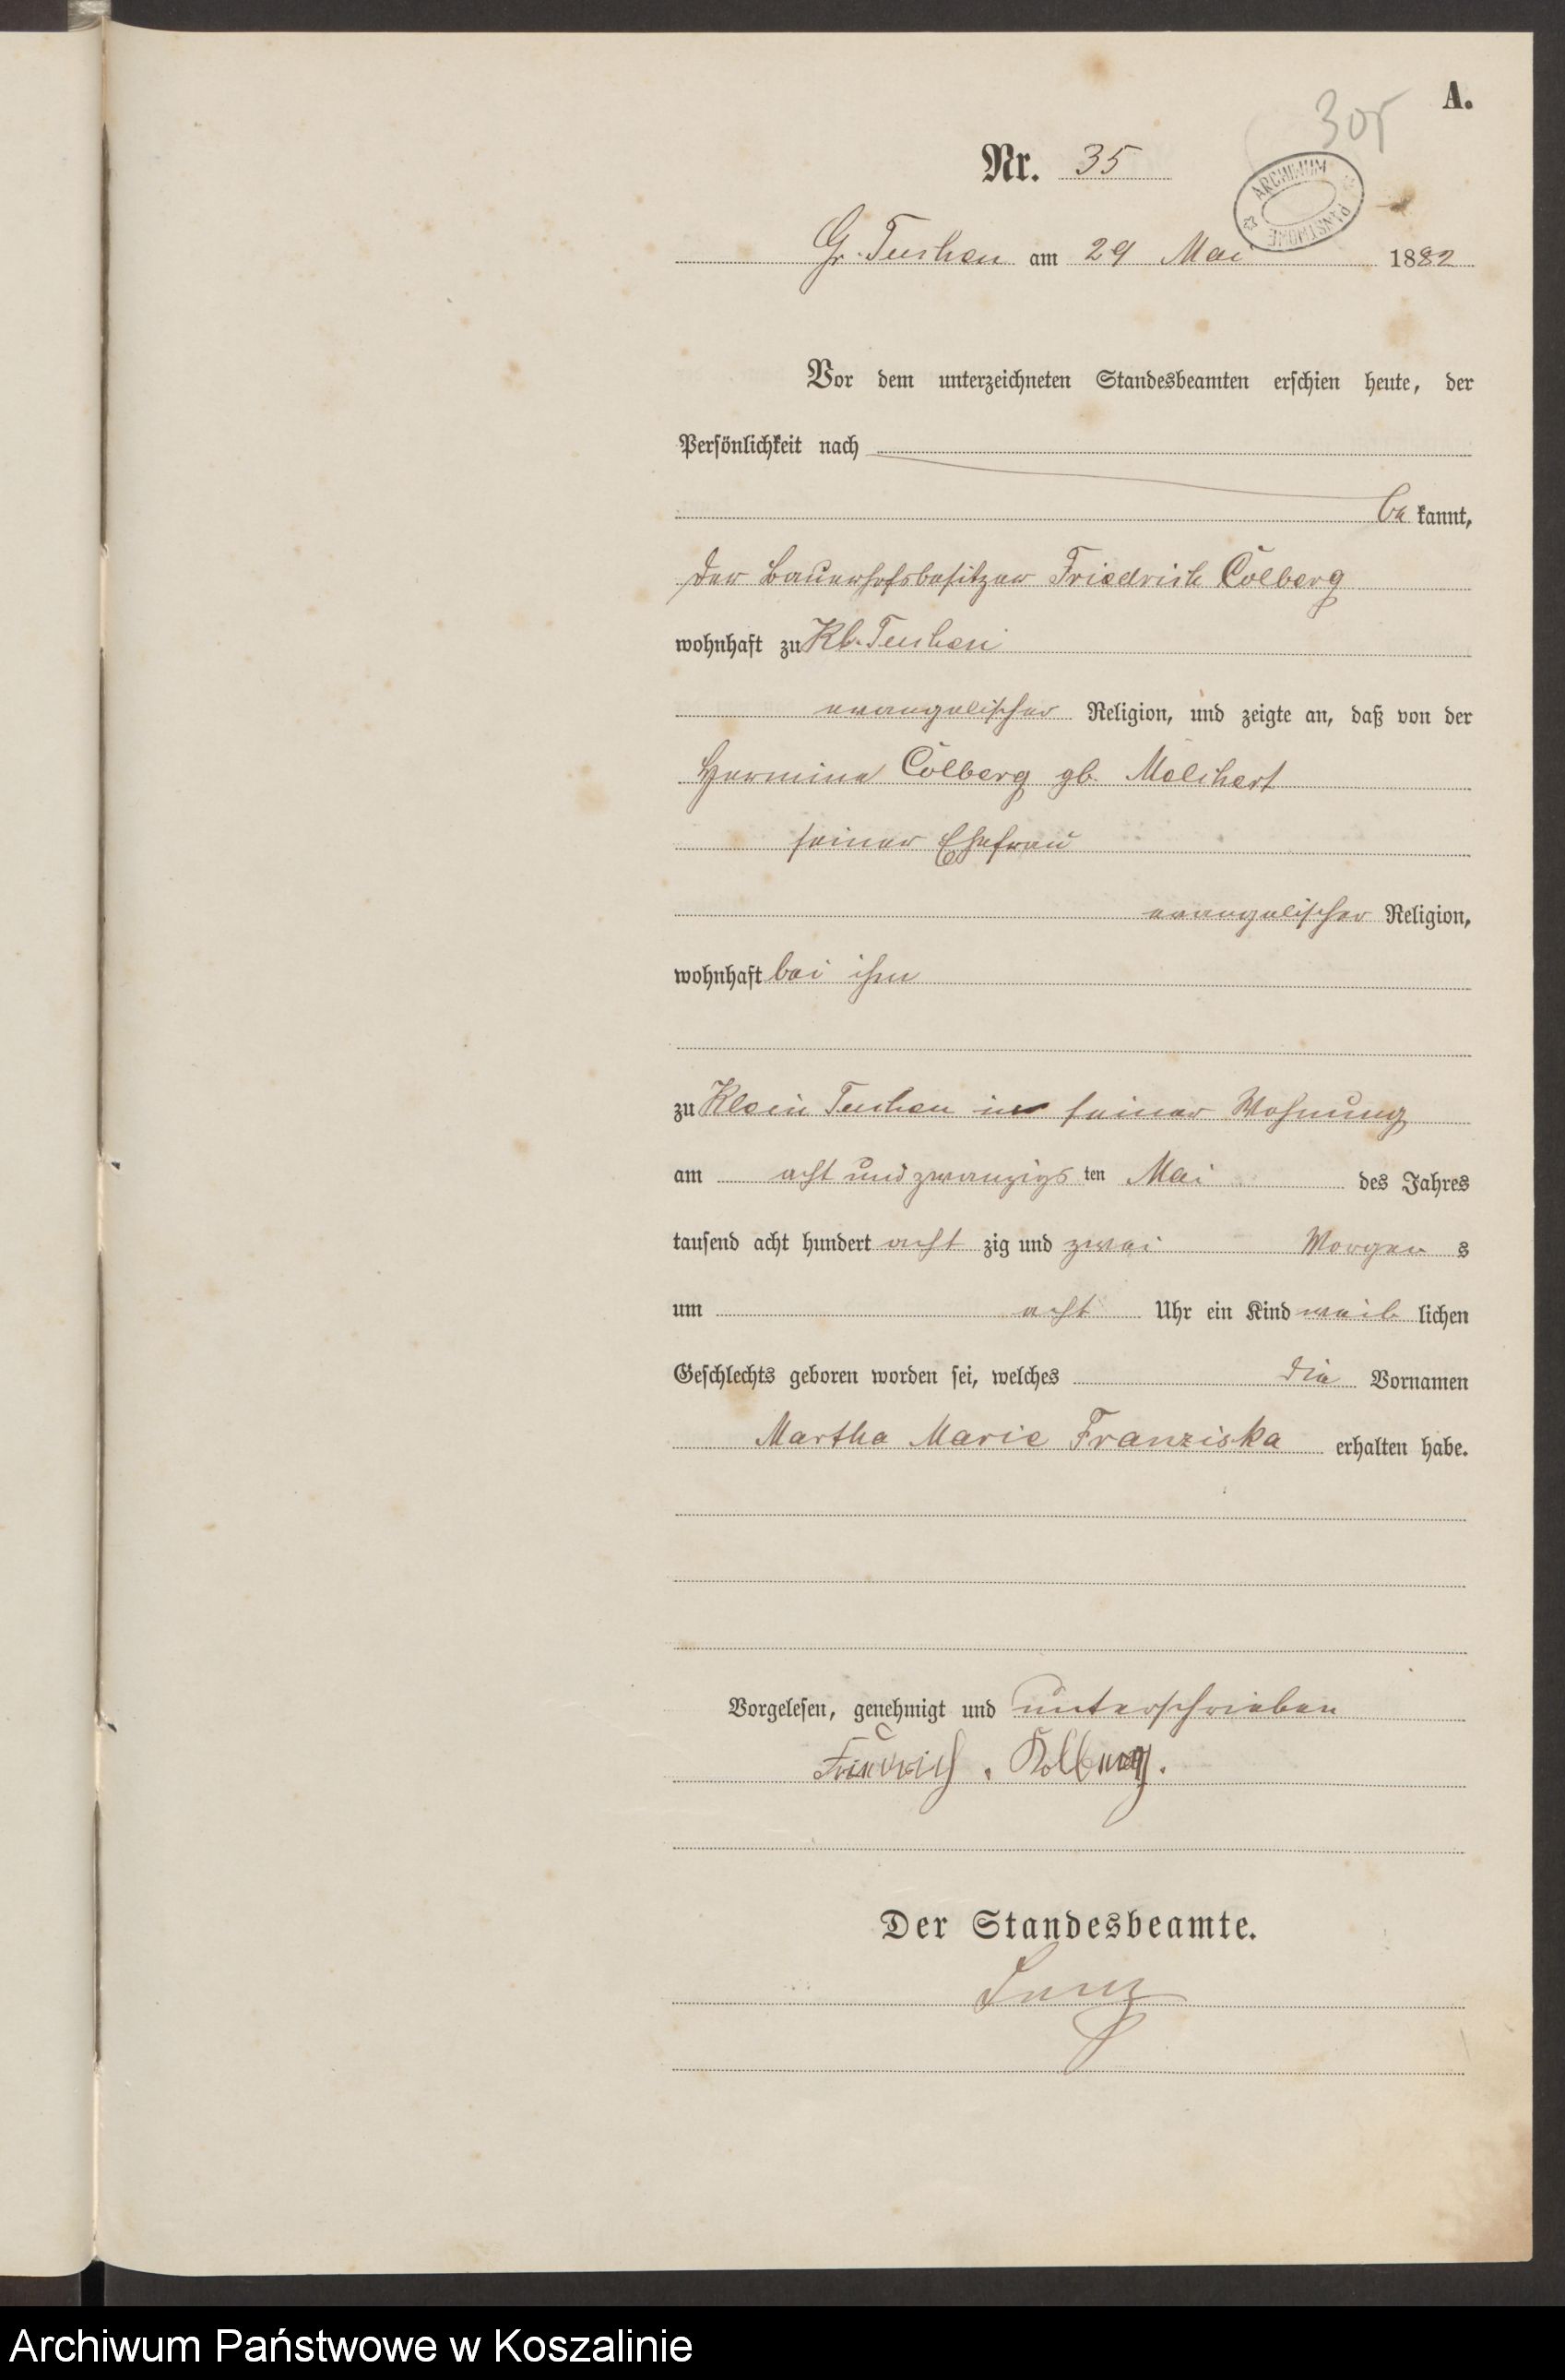 A.
305
Nr. 35
ARCHIWUM PAŃSTWOWE
Gr. Tuchen am 29 Mai 1882
Vor dem unterzeichneten Standesbeamten erschien heute, der
Persönlichkeit nach
be kannt,
der Bauerhofsbesitzer Friedrich Colberg
wohnhaft zu Kl. Tuchen
evangelischer Religion, und zeigte an, daß von der
Hermine Colberg gb. Melchert
seiner Ehefrau
evangelischer Religion,
wohnhaft bei ihm
zu Klein Tuchen in seiner Wohnung
am acht und zwanzigs ten Mai des Jahres
tausend acht hundert acht zig und zwei Morgen s
um acht Uhr ein Kind weib lichen
Geschlechts geboren worden sei, welches die Vornamen
Martha Marie Franziska erhalten habe.
Vorgelesen, genehmigt und unterschrieben
Friedrich . Kolberg.
Der Standesbeamte.
Archiwum Państwowe w Koszalinie